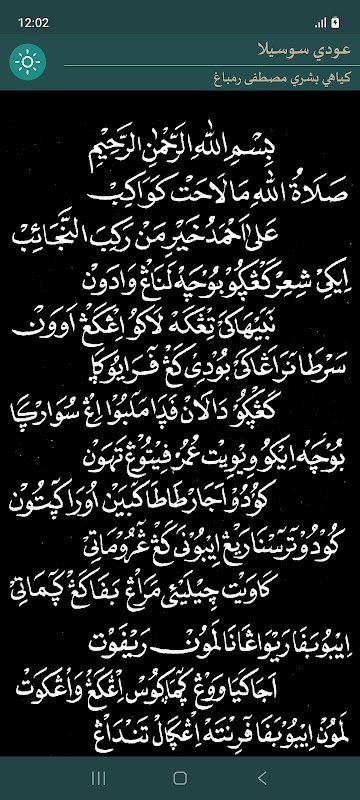 12:02
عودي سوسيلا
كياهي بشري مصطفى رمباغ
بِسْمِ اللهِ الرَّحْمٰنِ الرَّحِيْمِ
صَلَاةُ اللهِ مَا لَاحَتْ كَوَاكِبْ
عَلىٰ اَحْمَدْ خَيْرِ مَنْ رَكِبَ النَّجَائِبْ
اِيكِيْ شِعِرْ كَڠْڮَوْ بَوْچَهْ لَنَاڠْ وَادَوْنْ
نَبَيْهَاكَيْ تِڠْكَهْ لَاكُوْ اِڠْكَڠْ اَوَوْنْ
سَرْطَا نَرَاڠَاكَيْ بُوْدِيْ كَڠْ ڤَرَايَوْڮَا
كَڠْڮَوْ دَالَانْ ڤَدَا مَلَبُوْ اِڠْ سُوَارْڮَا
بَوْچَهْ اِيكُوْ وِيْوِيْتْ عُمُرْ ڤِيْتُوْڠْ تَهَوْنْ
كُوْدُوْ اَجَارْ طَاطَا كَبَيْنْ اَوْرَا ڮَتُوْنْ
كُوْدُوْ تَرَسْنَا رِيْڠْ اِيْبُوْنَيْ كَڠْ ڠَرُوْمَاتِيْ
كَاوِيْتْ چِيْلِيْئْ مَرَاڠْ بَڤَا كَڠْ ڮَمَاتِيْ
اِيْبُوْ بَڤَا رَيْوَاڠَانَا لَمَوْنْ رَيْڤَوْتْ
اَجَا كَيَا وَوْڠْ ڮَمَاڮُوْسْ اِڠْكَڠْ وَاڠْكَوْتْ
لَمَوْنْ اِيْبُوْ بَڤَا ڤَرِنْتَهْ اِڠْڮَالْ تَنْدَاڠْ